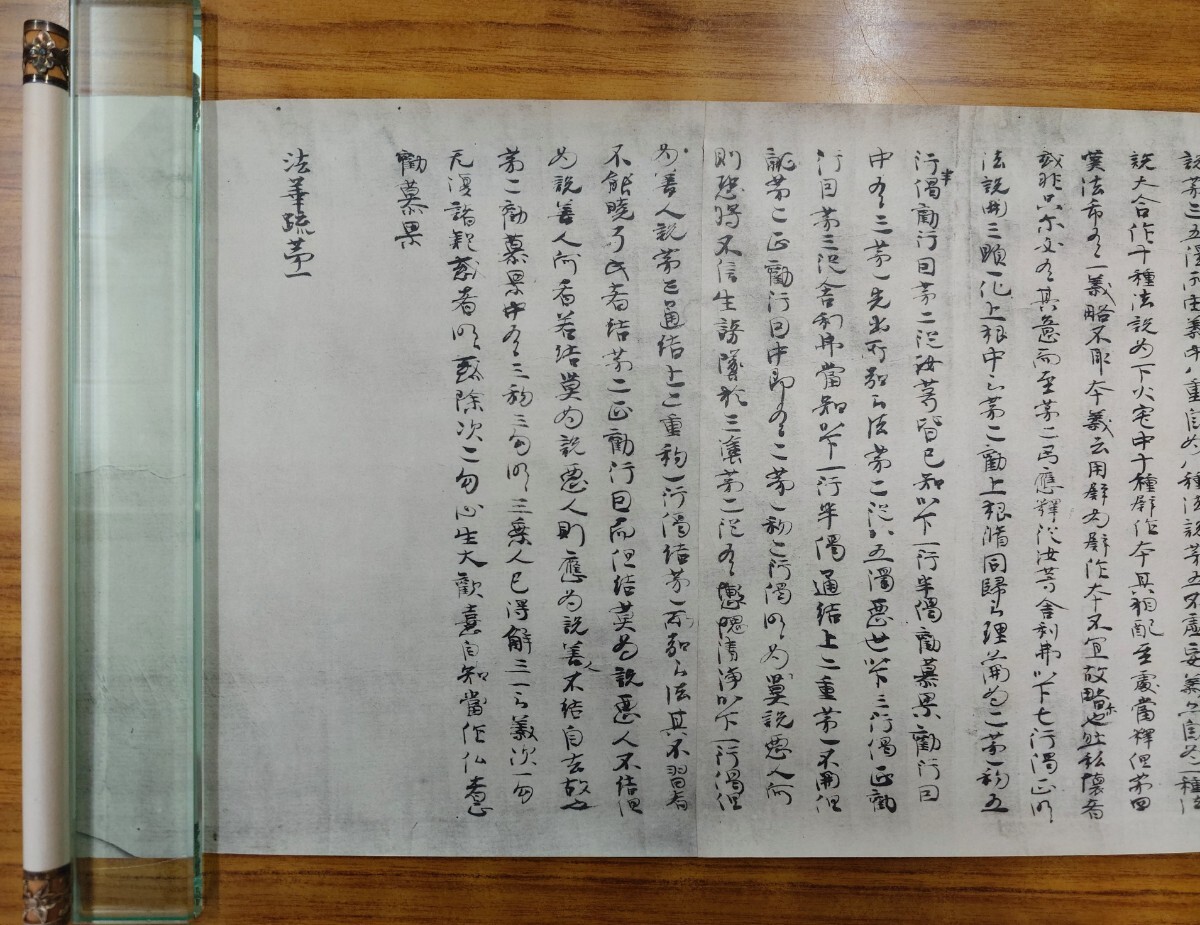 說大合作十種法說為下火宅中十種譬作本其相配至處當釋但第四
莫法希有一義略不彫本義云用譬為譬作本不宜故略也此私懷者
或非只尓文有其意而至第二寄應釋從汝等舍利弗以下七行偈正明
法說開三顯一化上根中之第二勸上根脩同歸之理開為二第一初五
行半偈勸行因第二從汝等皆已知以下一行半偈勸慕果勸行因
中有三第一先出所弘之法第二從以五濁惡世以下三行偈正勸
行因第三從舍利弗當知以下一行半偈通結上二重第一不開但
就第二正勸行因中即有二第一初二行偈明為莫說惡人何
則恐將不信生謗墮於三塗第二從有慙愧清淨以下一行偈但
為善人說第三通結上二重初一行偈結第一所弘之法其不習者
不能曉了此者結第二正勸行因而但結莫為說惡人不結但
為說善人何者若結莫為說惡人則應為說善人不結自去故也
第二勸慕果中有三初三句明三乘人已得解三一之義次一句
无復諸疑惑者明惑除次二句心生大歡喜自知當作仏者正
勸慕果
法華疏第一